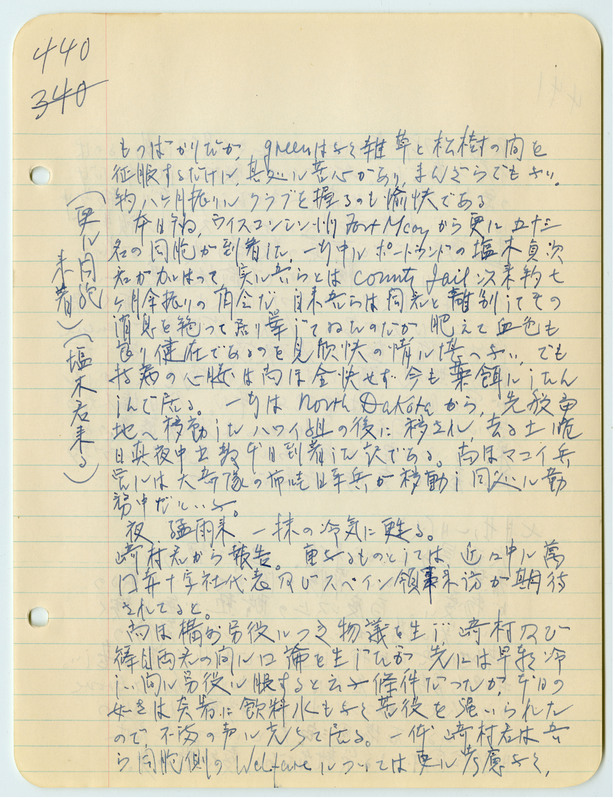 440
340
(更に同胞
来着)(塩木君来る)
ものばかりだが、greenはなく雑草と松樹の間を
征服するだけに、其処に苦心があり、まんざらでもない。
約八ヶ月振りにクラブを握るのも愉快である
本日午後、ウイスコンシン州 Fort McCoyから更に五十三
名の同胞が到着した、一行中にポートランドの塩木貞次
君が加はって、実に吾らとは County Jail以来約七
ヶ月余振りの再会だ、自来吾らは同君と離別してその
消息を絶って居り案じてゐたのだが肥えて血色も
良り健在であるのを見欣快の情に堪へない、でも
持病の心臓は尚ほ全快せず今も薬餌にしたし
んで居る。一行は North Dakotaから、先般当
地へ移動したハワイ組の後に移され 去る土曜
日真夜中出発 本日到着した訳である。尚ほマコイ兵
営には大部隊の布哇日系兵が移動し同処に勤
務中だといふ。
夜、猛雨来 一抹の冷気に甦る。
崎村君から報告。重なるものとしては 近日中に萬
国赤十字社代表及びスペイン領事来訪が期待
されてると。
尚ほ構外労役につき物議を生じ 崎村及び
篠田両君の間に口論を生じたが 先には早朝冷
しい間に労役に服すると云ふ條件だったが、本日の
如きは炎暑に飲料水もなく苦役を強いられた
ので不満の声に充ちて居る。一体 崎村君は吾
ら同胞側の Welfareについては更に考慮なく、